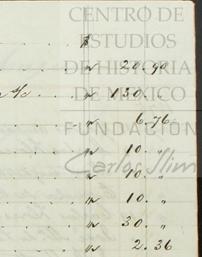 CENTRO DE
ESTUDIOS
DE HISTORIA
DE MÉXICO
FUNDACIÓN
Carlos Slim
$
" 20.90
" 130.
" 6.76
" 10. "
" 10. "
" 10. "
" 30. "
" 2.36